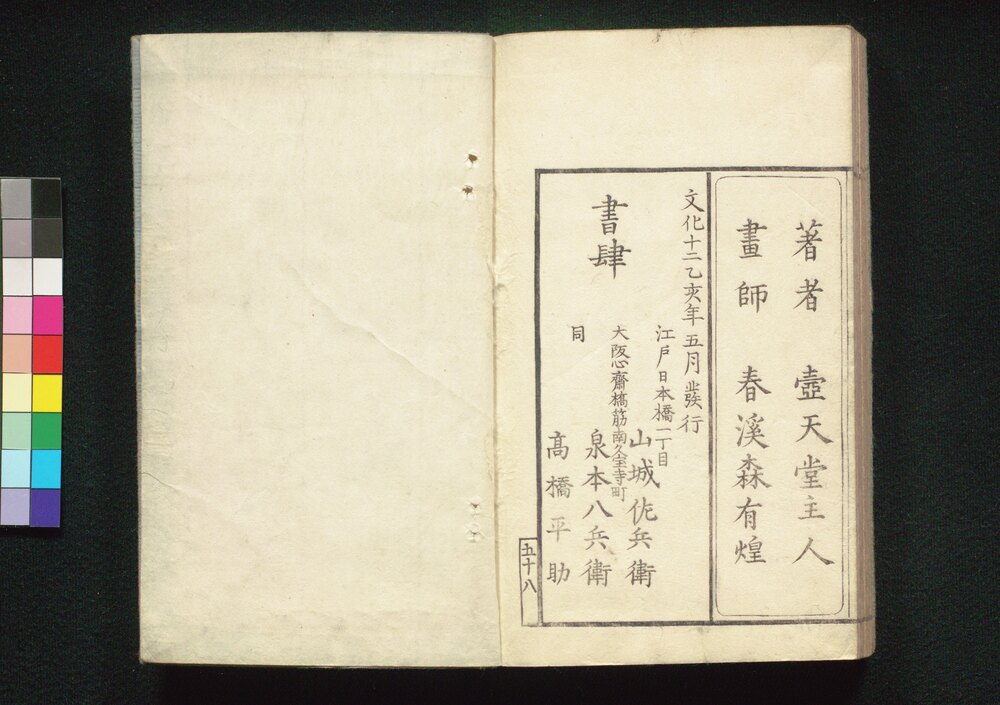 著者 壺天堂主人
畫師 春溪森有煌
文化十二乙亥年五月發行
書肆
江戸日本橋一丁目
山城佐兵衛
大阪心齋橋筋南久宝寺町
泉本八兵衛
同
高橋平助
五十八